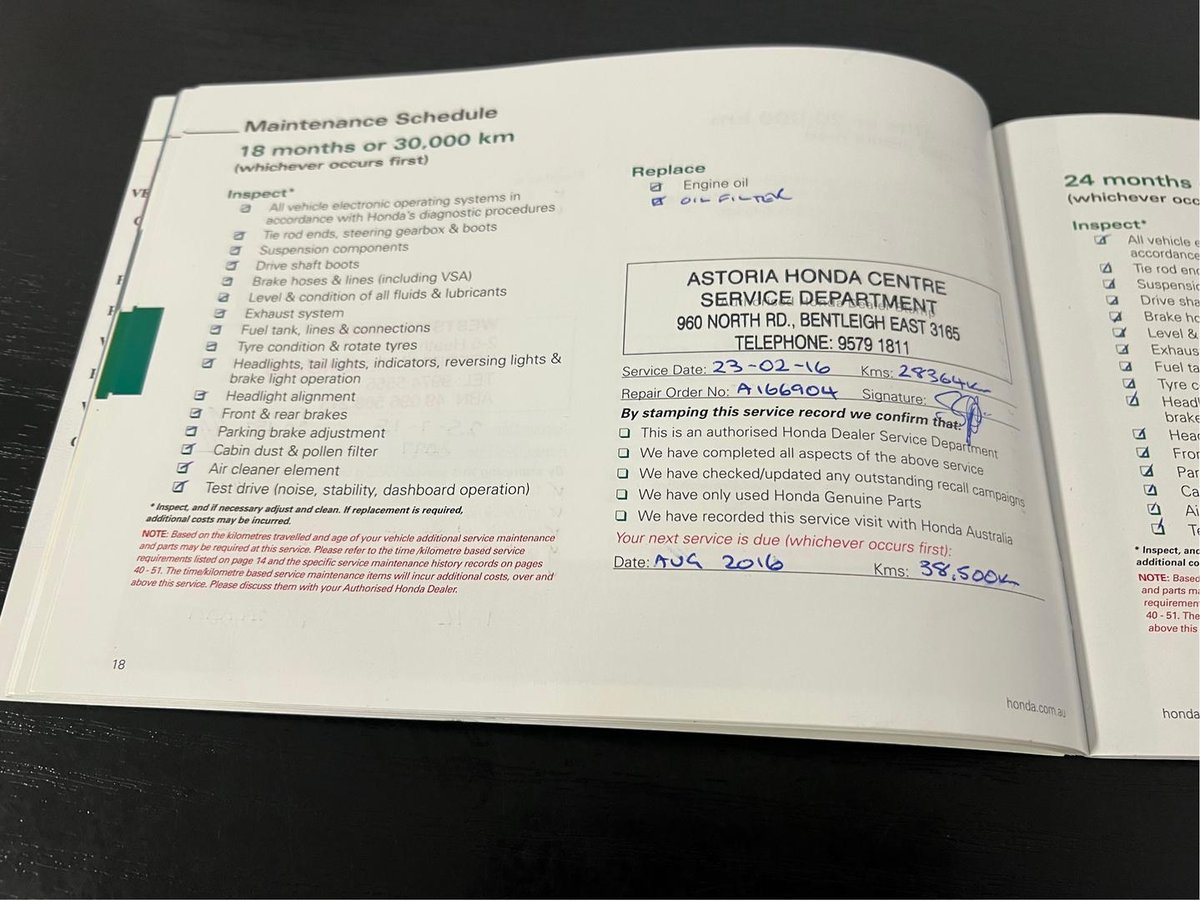 Maintenance Schedule
18 months or 30,000 km
(whichever occurs first)
Inspect*
All vehicle electronic operating systems in
accordance with Honda's diagnostic procedures
Tie rod ends, steering gearbox & boots
Suspension components
Drive shaft boots
Brake hoses & lines (including VSA)
Level & condition of all fluids & lubricants
Exhaust system
Fuel tank, lines & connections
Tyre condition & rotate tyres
Headlights, tail lights, indicators, reversing lights &
brake light operation
Headlight alignment
Front & rear brakes
Parking brake adjustment
Cabin dust & pollen filter
Air cleaner element
Test drive (noise, stability, dashboard operation)
* Inspect, and if necessary adjust and clean. If replacement is required,
additional costs may be incurred.
NOTE: Based on the kilometres travelled and age of your vehicle additional service maintenance
and parts may be required at this service. Please refer to the time /kilometre based service
requirements listed on page 14 and the specific service maintenance history records on pages
40 - 51. The time/kilometre based service maintenance items will incur additional costs, over and
above this service. Please discuss them with your Authorised Honda Dealer.
18
Replace
Engine oil
OIL FILTER
ASTORIA HONDA CENTRE
SERVICE DEPARTMENT
960 NORTH RD., BENTLEIGH EAST 3165
TELEPHONE: 9579 1811
Service Date: 23-02-16 Kms: 28364K
Repair Order No: A166904 Signature:
By stamping this service record we confirm that:
This is an authorised Honda Dealer Service Department
We have completed all aspects of the above service
We have checked/updated any outstanding recall campaigns
We have only used Honda Genuine Parts
We have recorded this service visit with Honda Australia
Your next service is due (whichever occurs first):
Date: AUG 2016 Kms: 38,500Km
honda.com.au
24 months
(whichever occ
Inspect*
All vehicle e
accordance
Tie rod end
Suspensio
Drive sha
Brake ho
Level &
Exhaus
Fuel ta
Tyre c
Headl
brake
Head
Fron
Par
Ca
Ai
Te
* Inspect, and
additional co
NOTE: Based
and parts ma
requirement
40 - 51. The
above this
honda